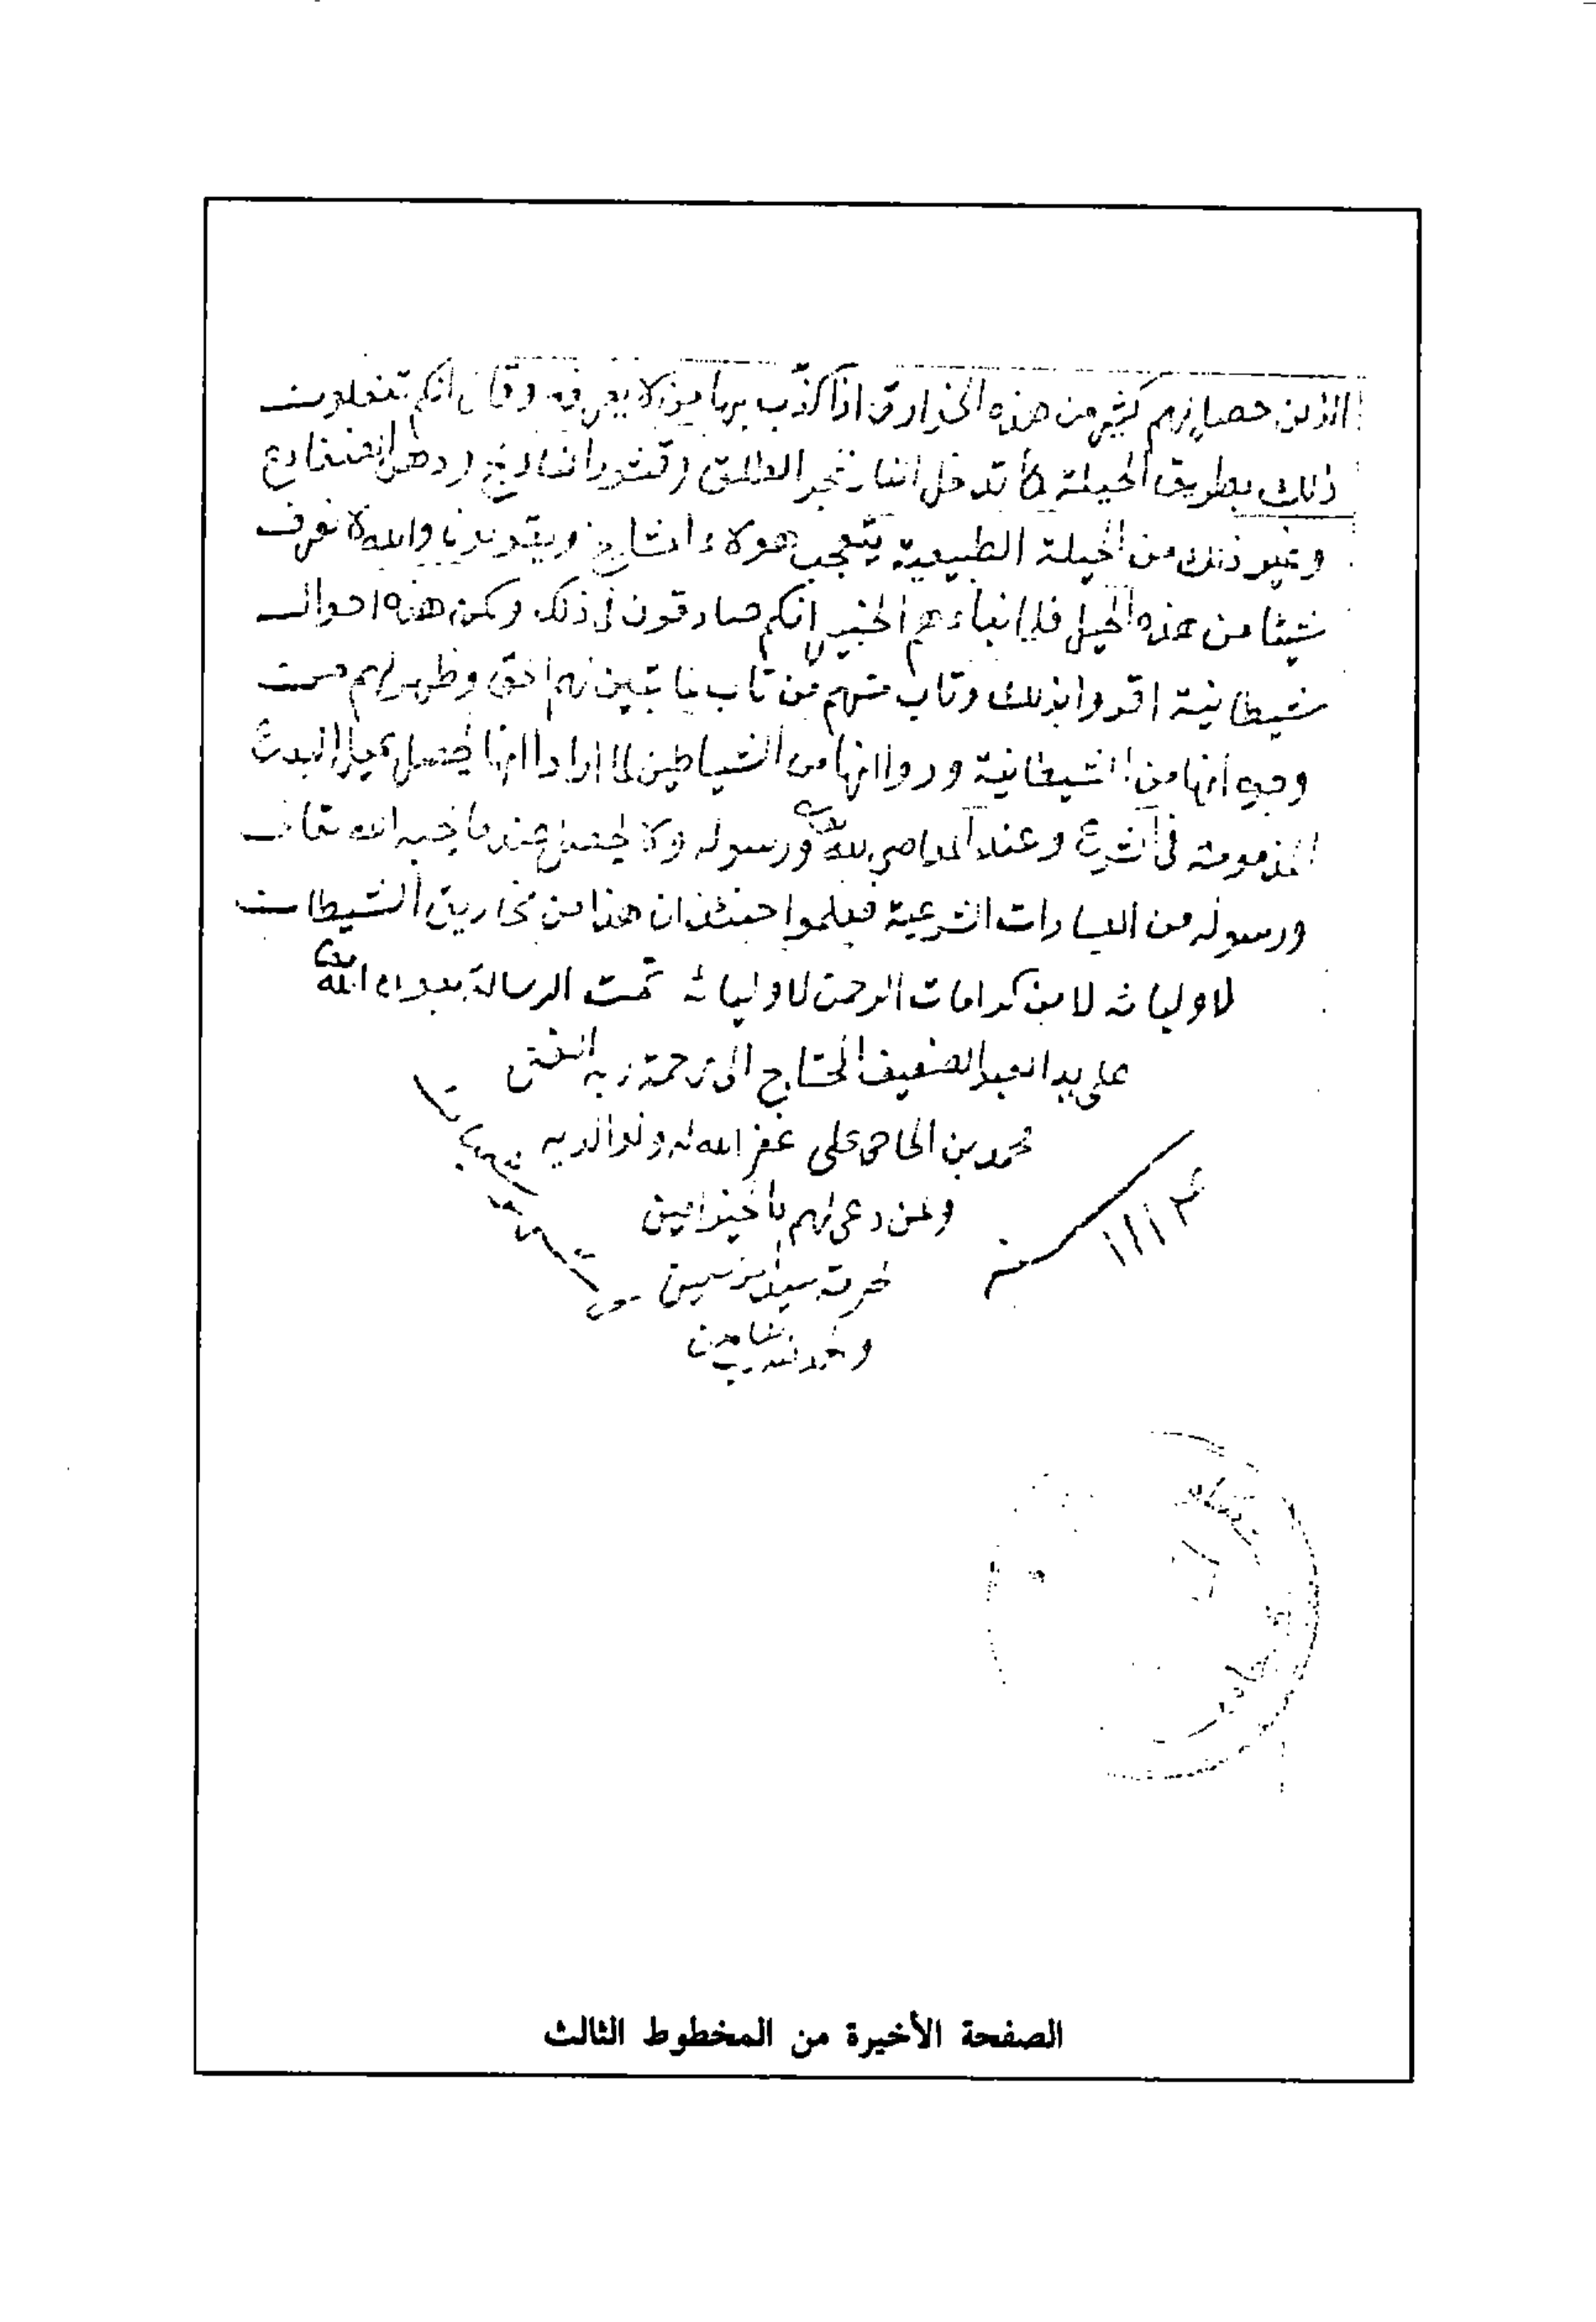 الذين حصل لهم كثير من هذه الخوارق اذا كذّب بها من لا يعرفه وقال انكم تفعلون
ذلك بطريق الحيلة كما تدخل النار بحجر الطلق وقشور النارنج ودهن الضفادع
وغير ذلك من الحيلة الطبيعية يتعجب هولاء المشايخ ويقولون والله لا نعرف
شيئا من هذه الحيل فلما نباءهم الخبير انكم صادقون في ذلك ولكن هذه احوال
شيطانية اقروا بذلك وتاب منهم من تاب لما تبين لهم الحق وظهر لهم من
وجوه انها من الشيطانية وروا انها من الشياطين لما اراوا انها تحصل بمثل البدع
المذمومة في الشرع وعند المعاصي لله ورسوله ولا تحصل عند ما يحبه الله تعالى
ورسوله من العبادات الشرعية فعلموا حينئذ ان هذا من مخاريق الشيطان
لاوليائه لا من كرامات الرحمن لاوليائه تمت الرسالة بعون الله
على يد العبد الضعيف المحتاج الى رحمة ربه الغني
محمد بن الحاجى على غفر الله له ولوالديه
ولمن دعى لهم بالخير امين
بحرمة سيد المرسلين
والحمد لله رب العالمين
سنة
الصفحة الأخيرة من المخطوط الثالث